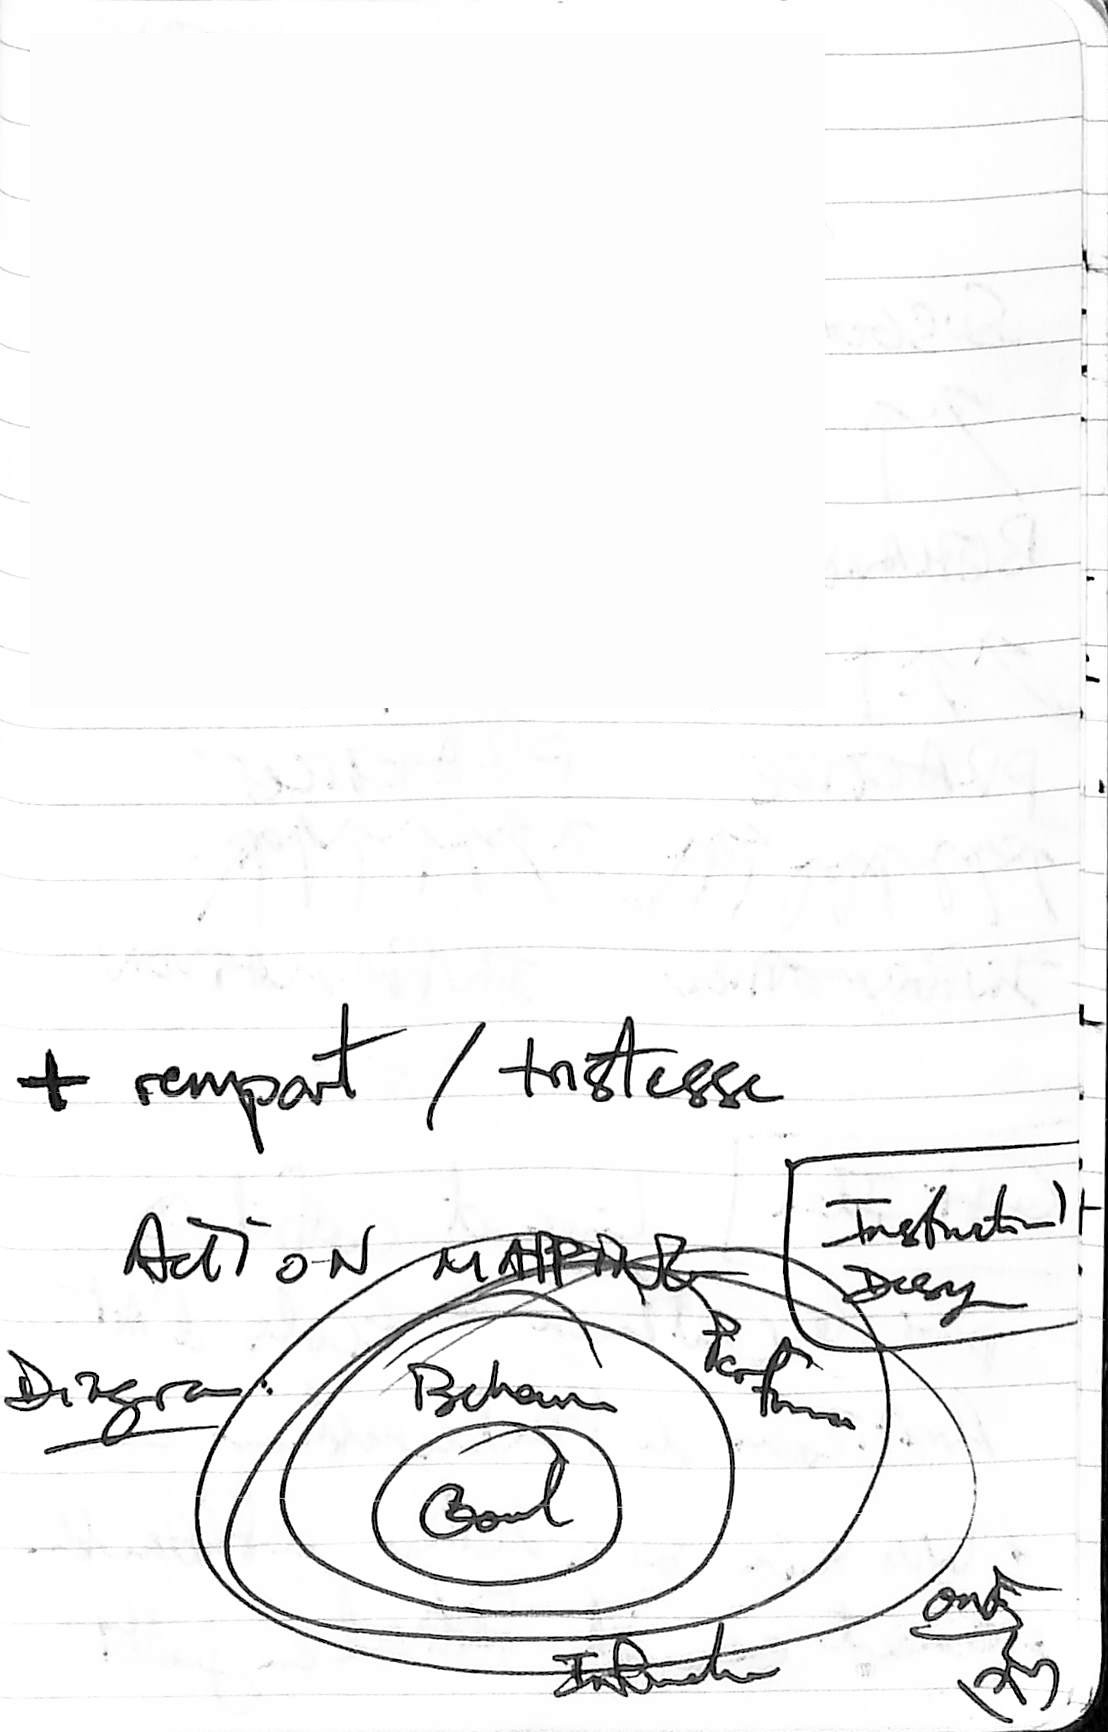 + rempart / tristesse
ACTION MAPPING
Instructional
Design
Diagram:
Behavior
Performance
Goal
Information